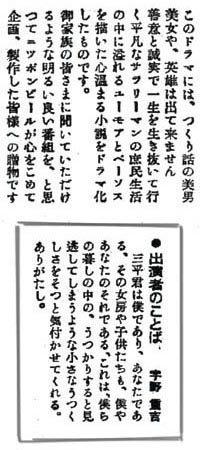 このドラマには、つくり話の美男
美女や、英雄は出て来ません
善意と誠実で一生を生き抜いて行
く平凡なサラリーマンの庶民生活
の中に溢れるユーモアとペーソス
を描いた心温まる小説をドラマ化
したものです。
御家族の皆さまに聞いていただけ
るような明るい良い番組を、と思
つてニッポンビールが心をこめて
企画、製作した皆様への贈物です
●出演者のことば、　宇野重吉
三平君は僕であり、あなたであ
る、その女房や子供たちも、僕や
あなたのそれである、これは、僕ら
の暮しの中の、うつかりすると見
逃してしまうような小さなうつく
しさをそつと気付かせてくれる。
ありがたし。